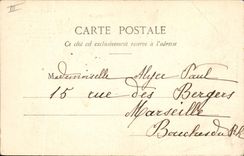 III
CARTE POSTALE
Ce côté est exclusivement réservé à l'adresse
Mademoiselle Alyce Paul
15 rue des Bergers
Marseille
Bouches du Rh